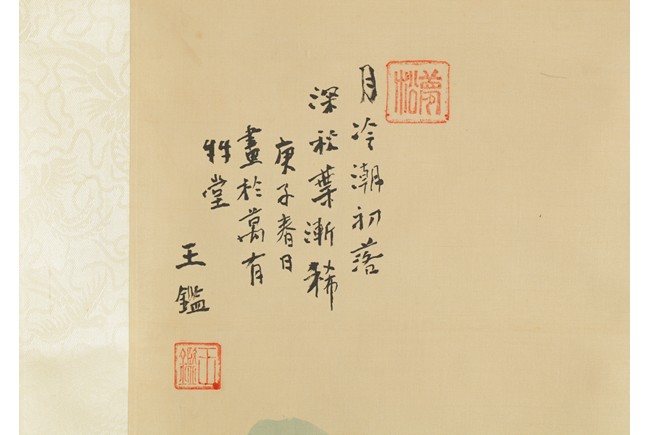 月冷潮初落
深秋葉漸稀
庚子春日
畫於萬有
艸堂
王鑑
王鑑